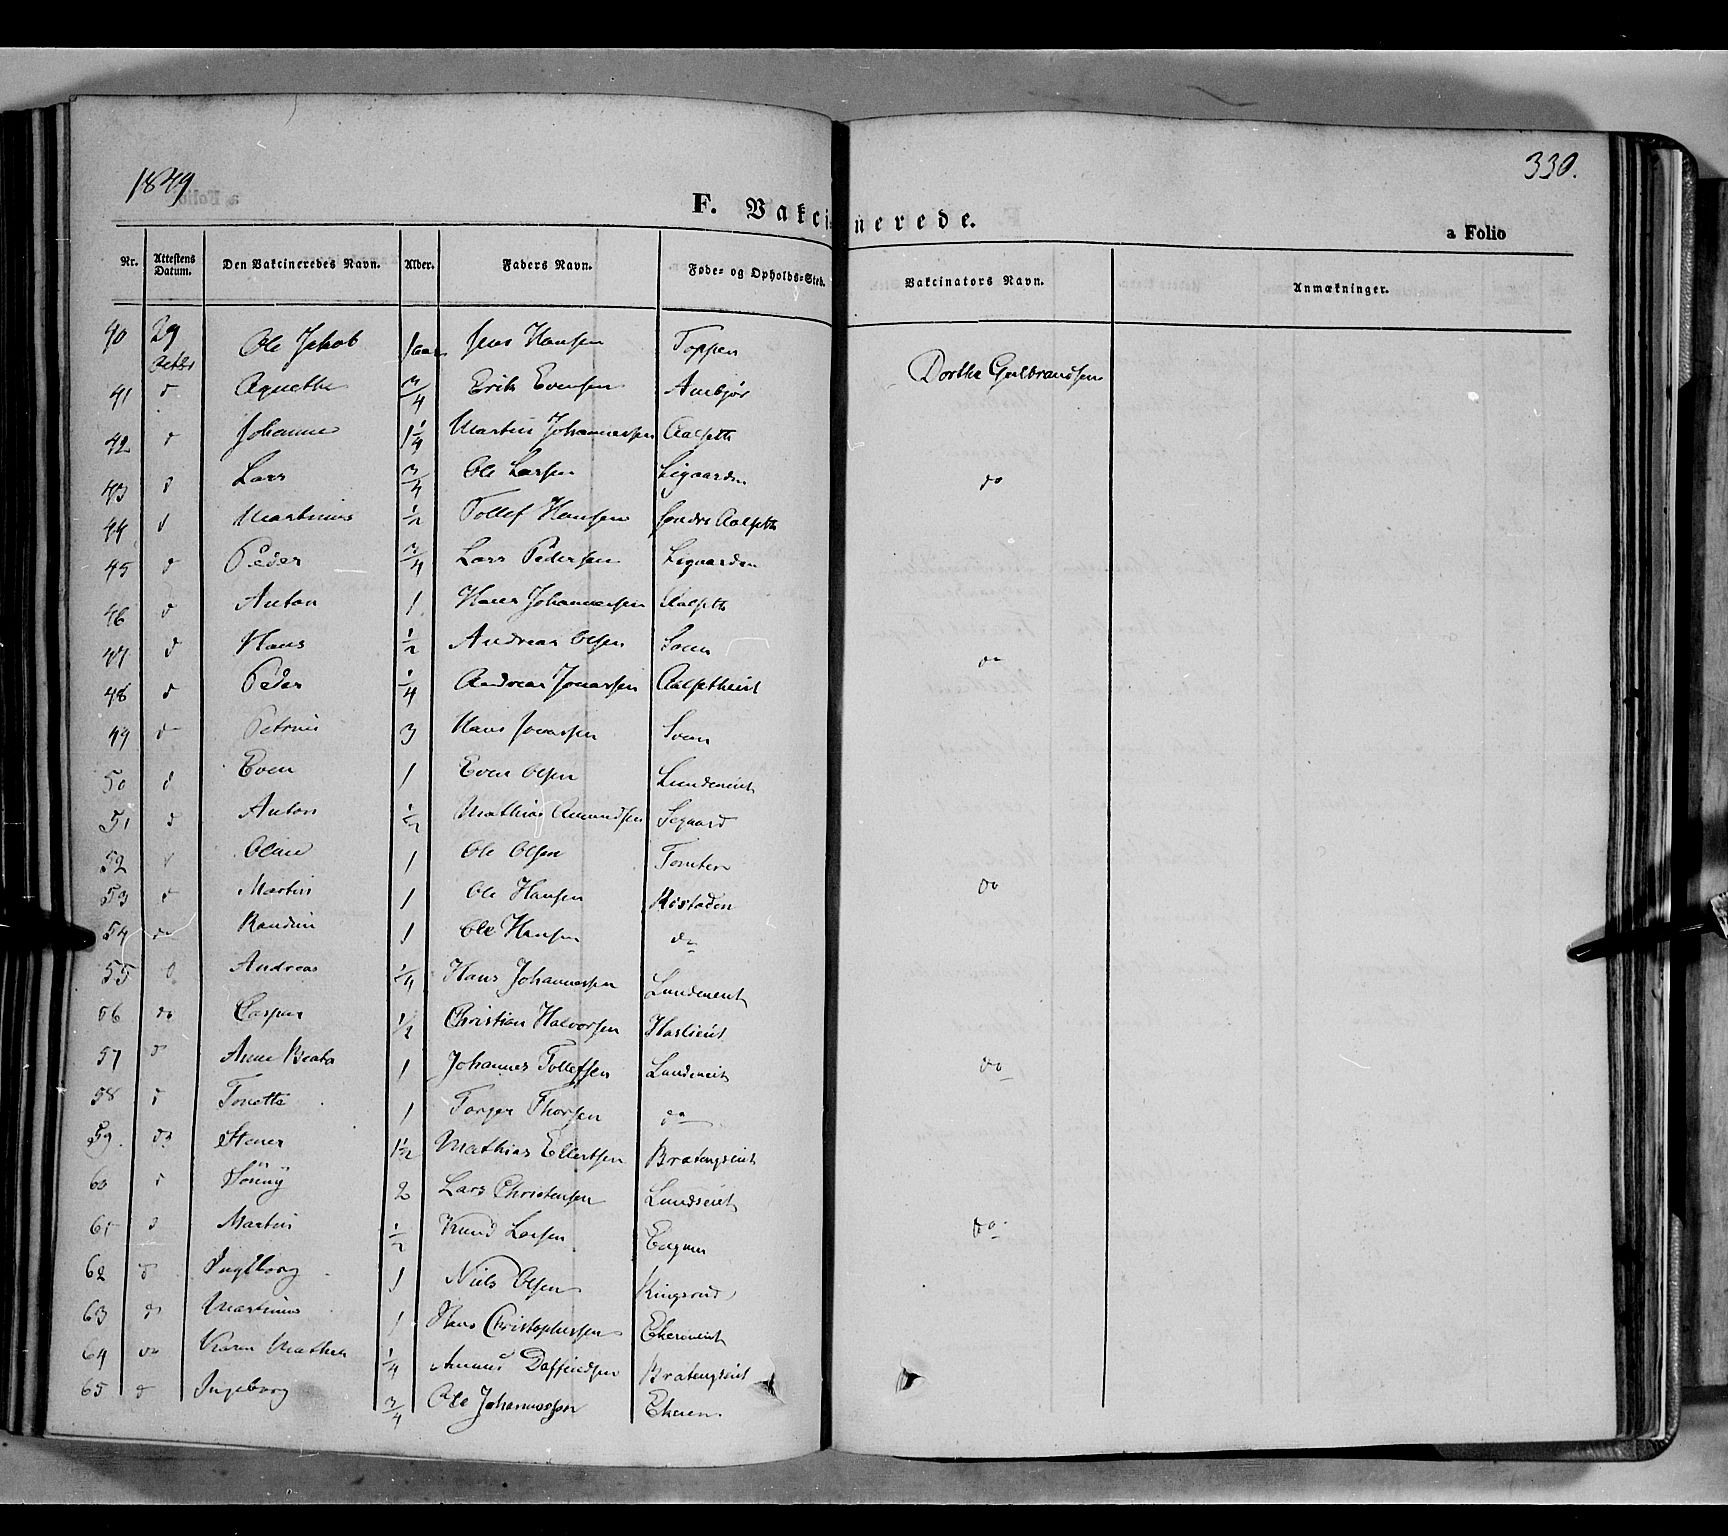 1849
330.
F. Vakcinerede.
a Folio
Nr. Attestens Datum. Den Vakcineredes Navn. Alder. Faders Navn. Føde- og Opholds-Sted. Vakcinators Navn. Anmærkninger.
40 29 Octbr Ole Jakob 1 aar Jens Hansen Toppen Dorthe Gulbrandsen
41 d Agnethe 3/4 Erik Evensen
42 d Johanne 1 1/4 Martin Johannessen Aalseth
43 d Lars 3/4 Ole Larsen Ligaarden do
44 d Martinus 1/2 Tollef Hansen søndre Aalseth
45 d Peder 3/4 Lars Pedersen Ligaarden
46 d Anton 1 Hans Johannessen Aalseth
47 d Hans 1/2 Andreas Olsen Soen do
48 d Peder 1/4 Andreas Jonassen Aalsetheiet
49 do 3 Hans Jonassen Soen
50 d Even 1 Even Olsen Lundeneiet
51 d Anton 1/2 Mathias Amundsen Segaard
52 d Oline 1 Ole Olsen Tomten
53 d Martin 1 Ole Hansen Kostaden do
54 do Randine 1 Ole Hansen do
55 d Andreas 1/4 Hans Johannessen Lundeneiet
56 do Casper 1/2 Christian Halvorsen Haslieiet
57 d Anne Beate 1 Johannes Tollefsen Lundeneiet do
58 d Tonette 1 Torger Thorsen do
59. do Stener 1 1/2 Mathias Ellertsen Bratengseiet
60 d 2 Lars Christensen Lundseiet
61 d Martin 1/2 Knud Larsen do
62 d Ingeborg 1 Niels Olsen Ringsrud
63 do Martinus 1 Hans Christophersen Ekerneiet
64 do Karen Mathea 1/4 Bratengseiet
65 d Ingeborg 3/4 Ole Johannessen Ekeren